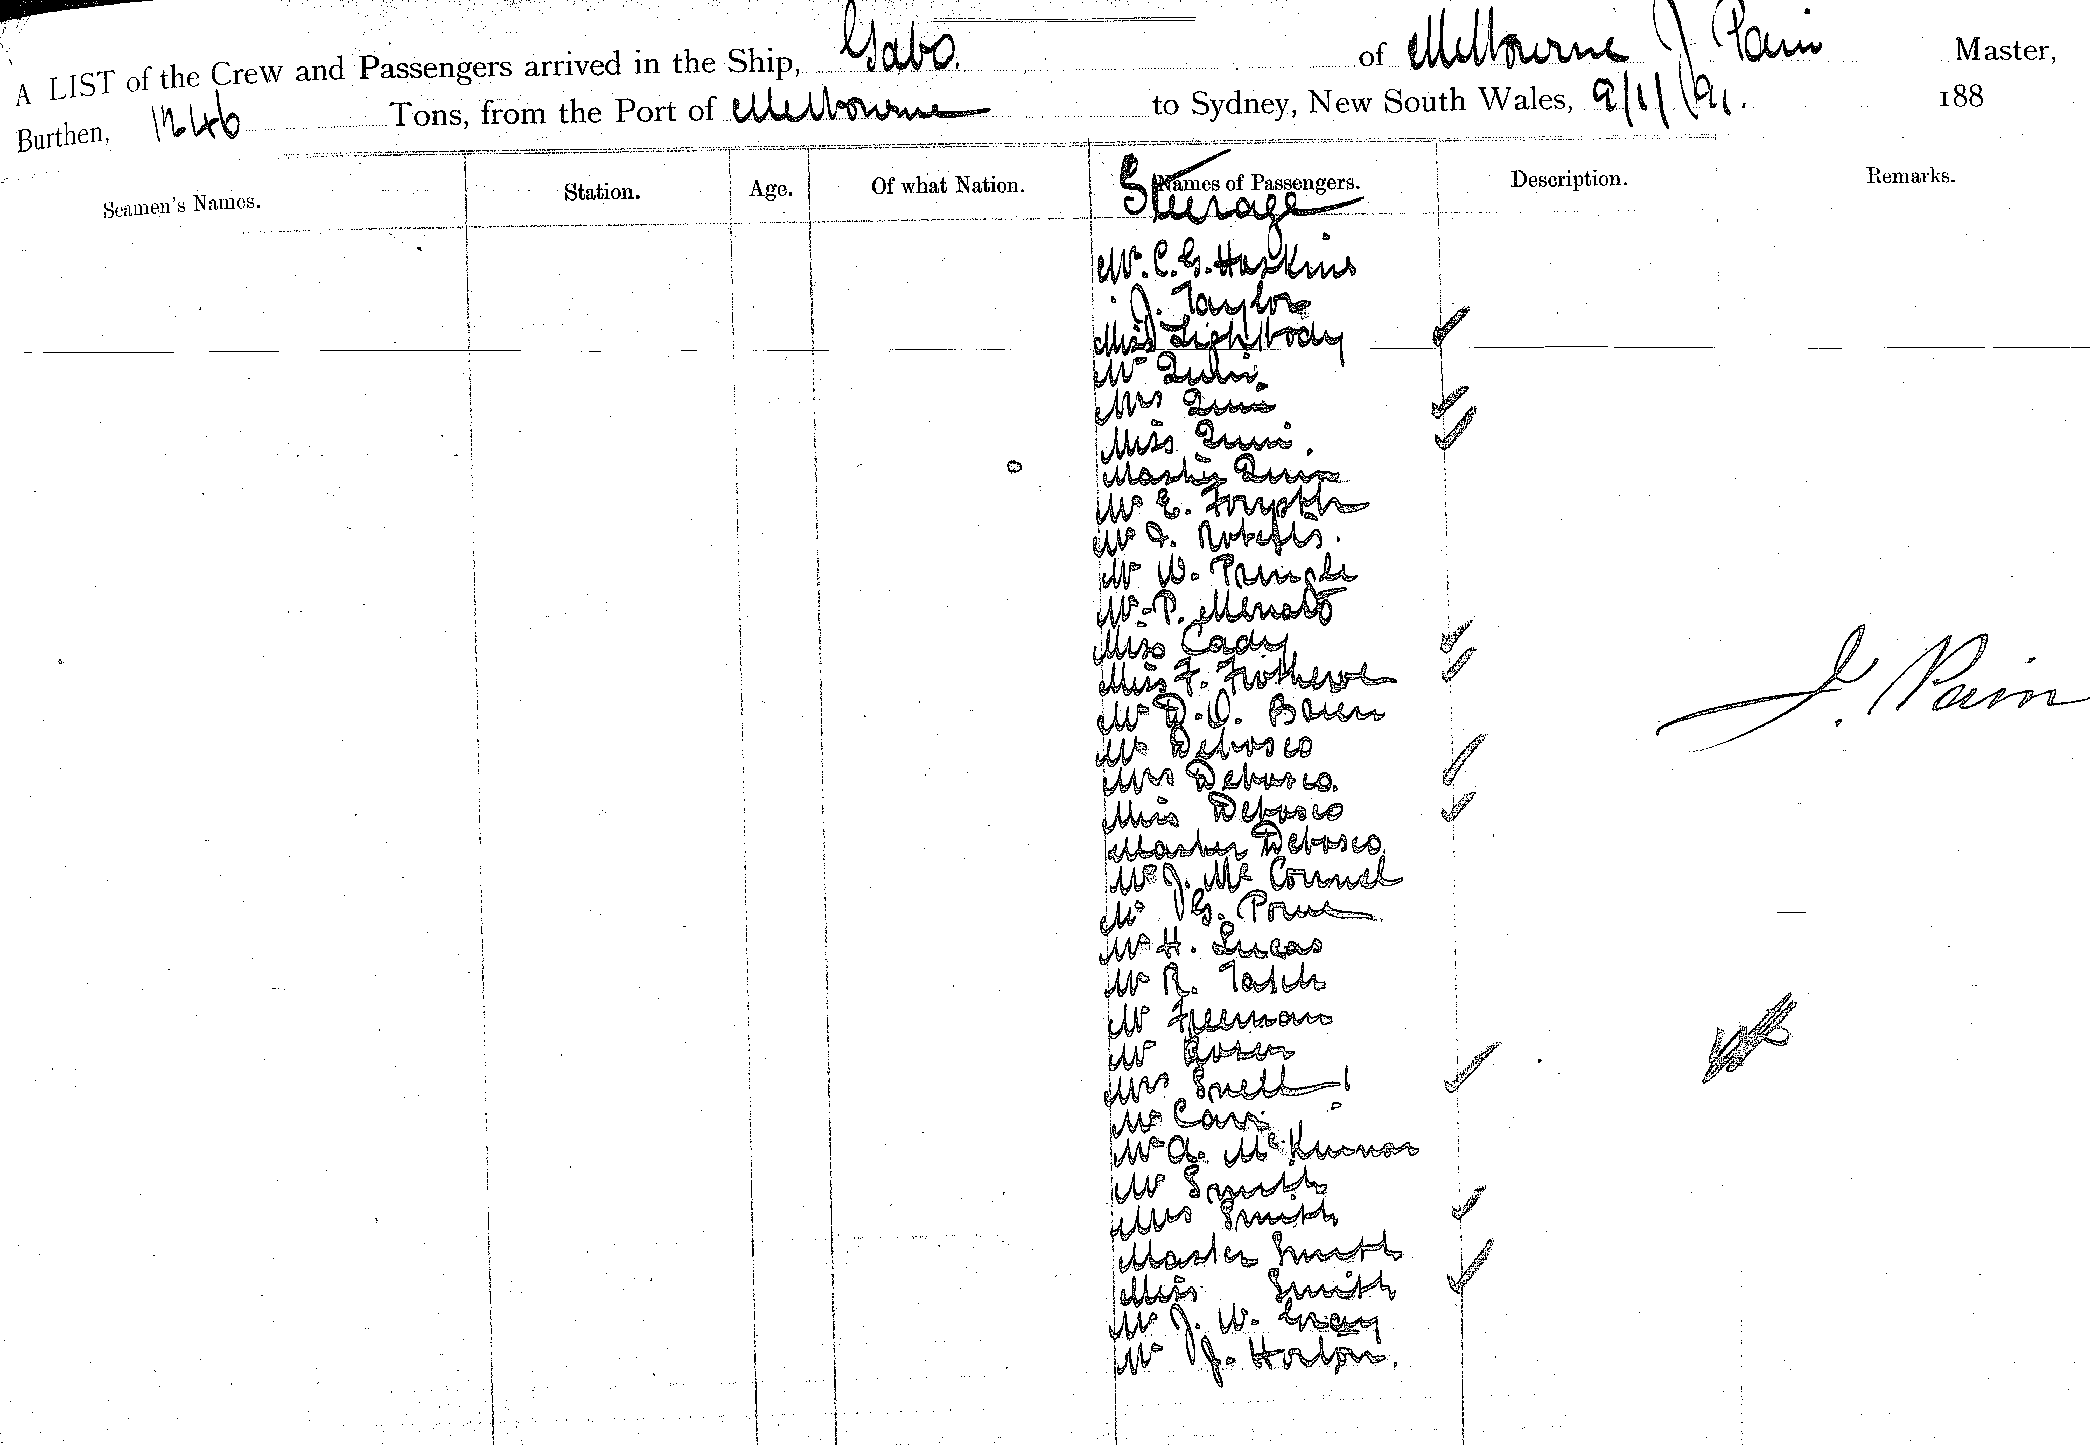 A LIST of the Crew and Passengers arrived in the Ship, Gabo. of Melbourne J Pain Master,
Burthen, 1246 Tons, from the Port of Melbourne to Sydney, New South Wales, 9/1/91. 188
Seamen's Names. Station. Age. Of what Nation. Names of Passengers. Description. Remarks.
Steerage
Mr. C. G. Hoskins
J. Taylor
Miss Lightbody
Mr Quin.
Mrs Quin
Miss Quin.
Master Quin
Mr E. Forsyth
Mr J. Roberts.
Mr W. Pringle
Mr. P.
Miss Cady
Miss F.
Mr D. O. Brien
Mr Debosco
Mrs Debosco.
Miss Debosco
Master Debosco.
Mr J. McConnel
Mr G.
Mr H. Lucas
Mr R.
Mr Freeman
Mr
Mrs Snell
Mr
Mr A. McKinnon
Mr Smith
Mrs Smith
Master Smith
Miss Smith
Mr J. W. Gray
Mr J. Horton.
J. Pain